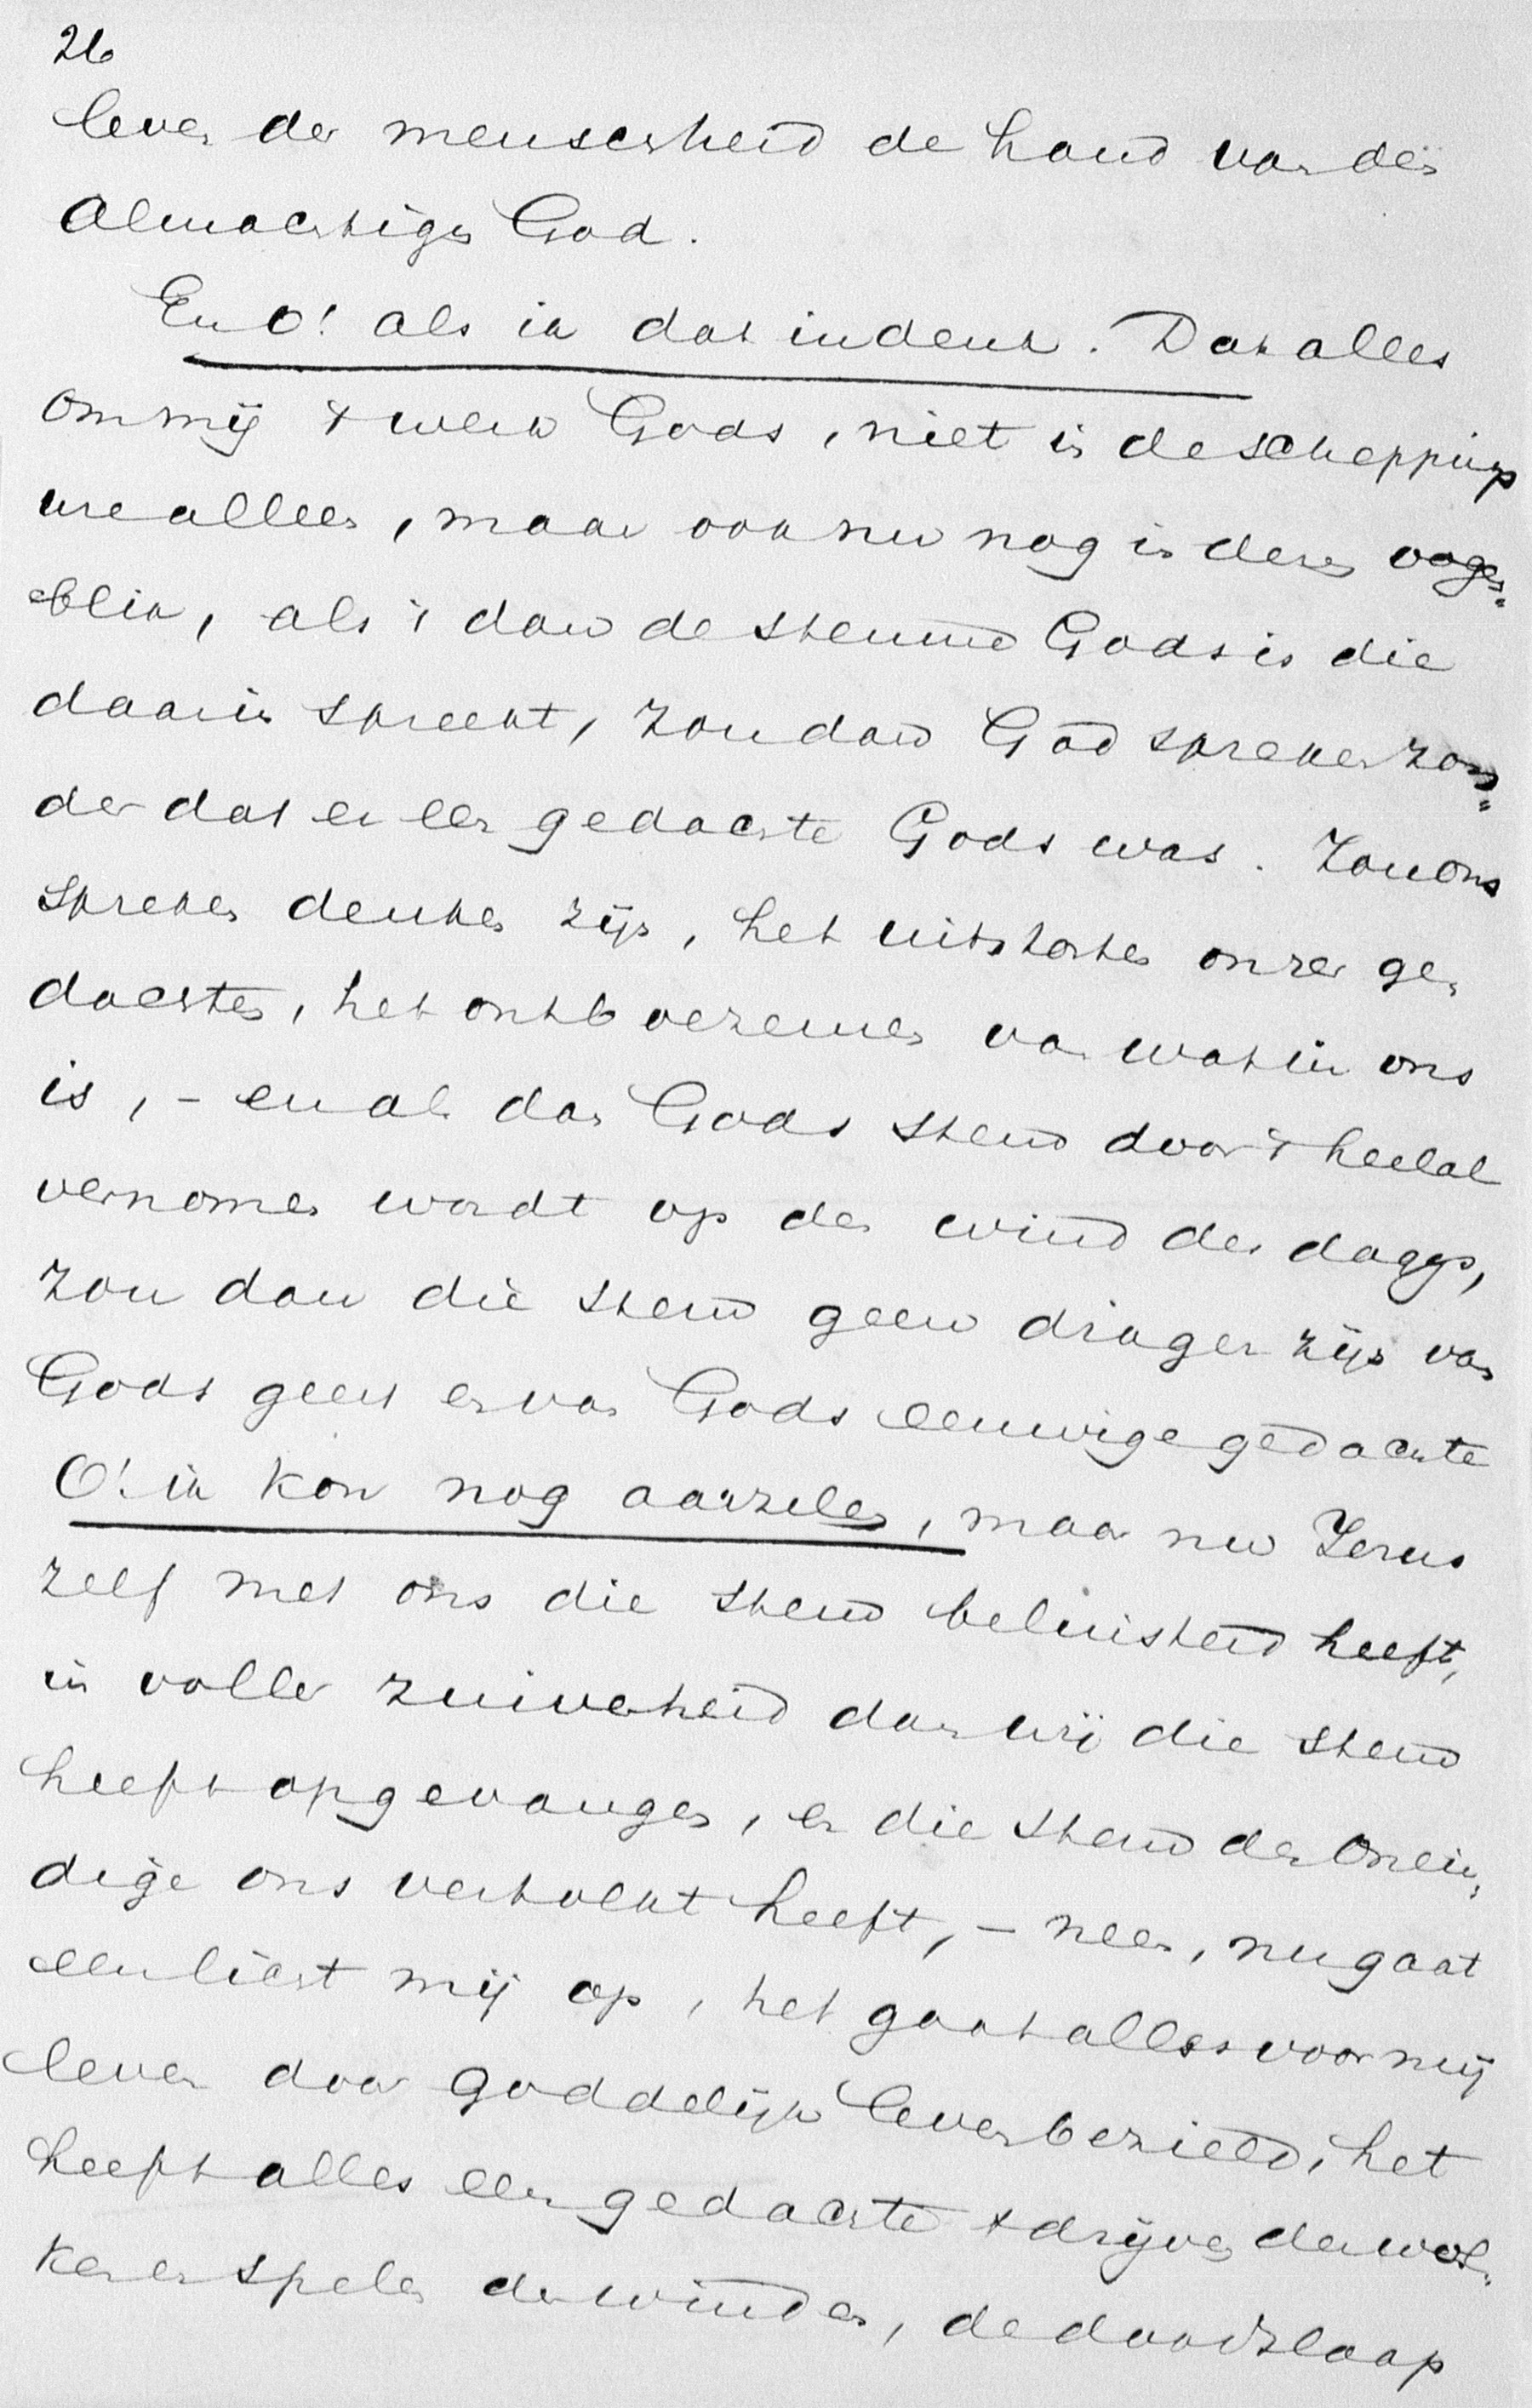 26
leven der menschheid de hand van den
Almachtigen God.
En O! als ik dat indenk. Dat alles
om mij 't werk Gods, niet in de scheppings
ure alleen, maar ook nu nog in dezen oogen=
blik, als 't dan de stemme Gods is die
daarin spreekt, zou dan God spreken zon=
der dat er een gedachte Gods was. Zou ons
spreken denken zijn, het uitstorten onzer ge=
dachten, het ontboezemen van wat in ons
is, - en als dan Gods stem door 't heelal
vernomen wordt op den wind des daags,
zou dan die stem geen drager zijn van
Gods geest en van Gods eeuwige gedachte
O! ik kon nog aarzelen, maar nu Jezus
zelf met ons die stem beluisterd heeft,
in voller zuiverheid dan wij die stem
heeft opgevangen, en die stem der Onein=
dige ons vertolkt heeft, - neen, nu gaat
een licht mij op, het gaat alles voor mij
leven door goddelijk leven bezield, het
heeft alles een gedachte 't drijven der wol=
ken en spelen der winden, de doodslaap